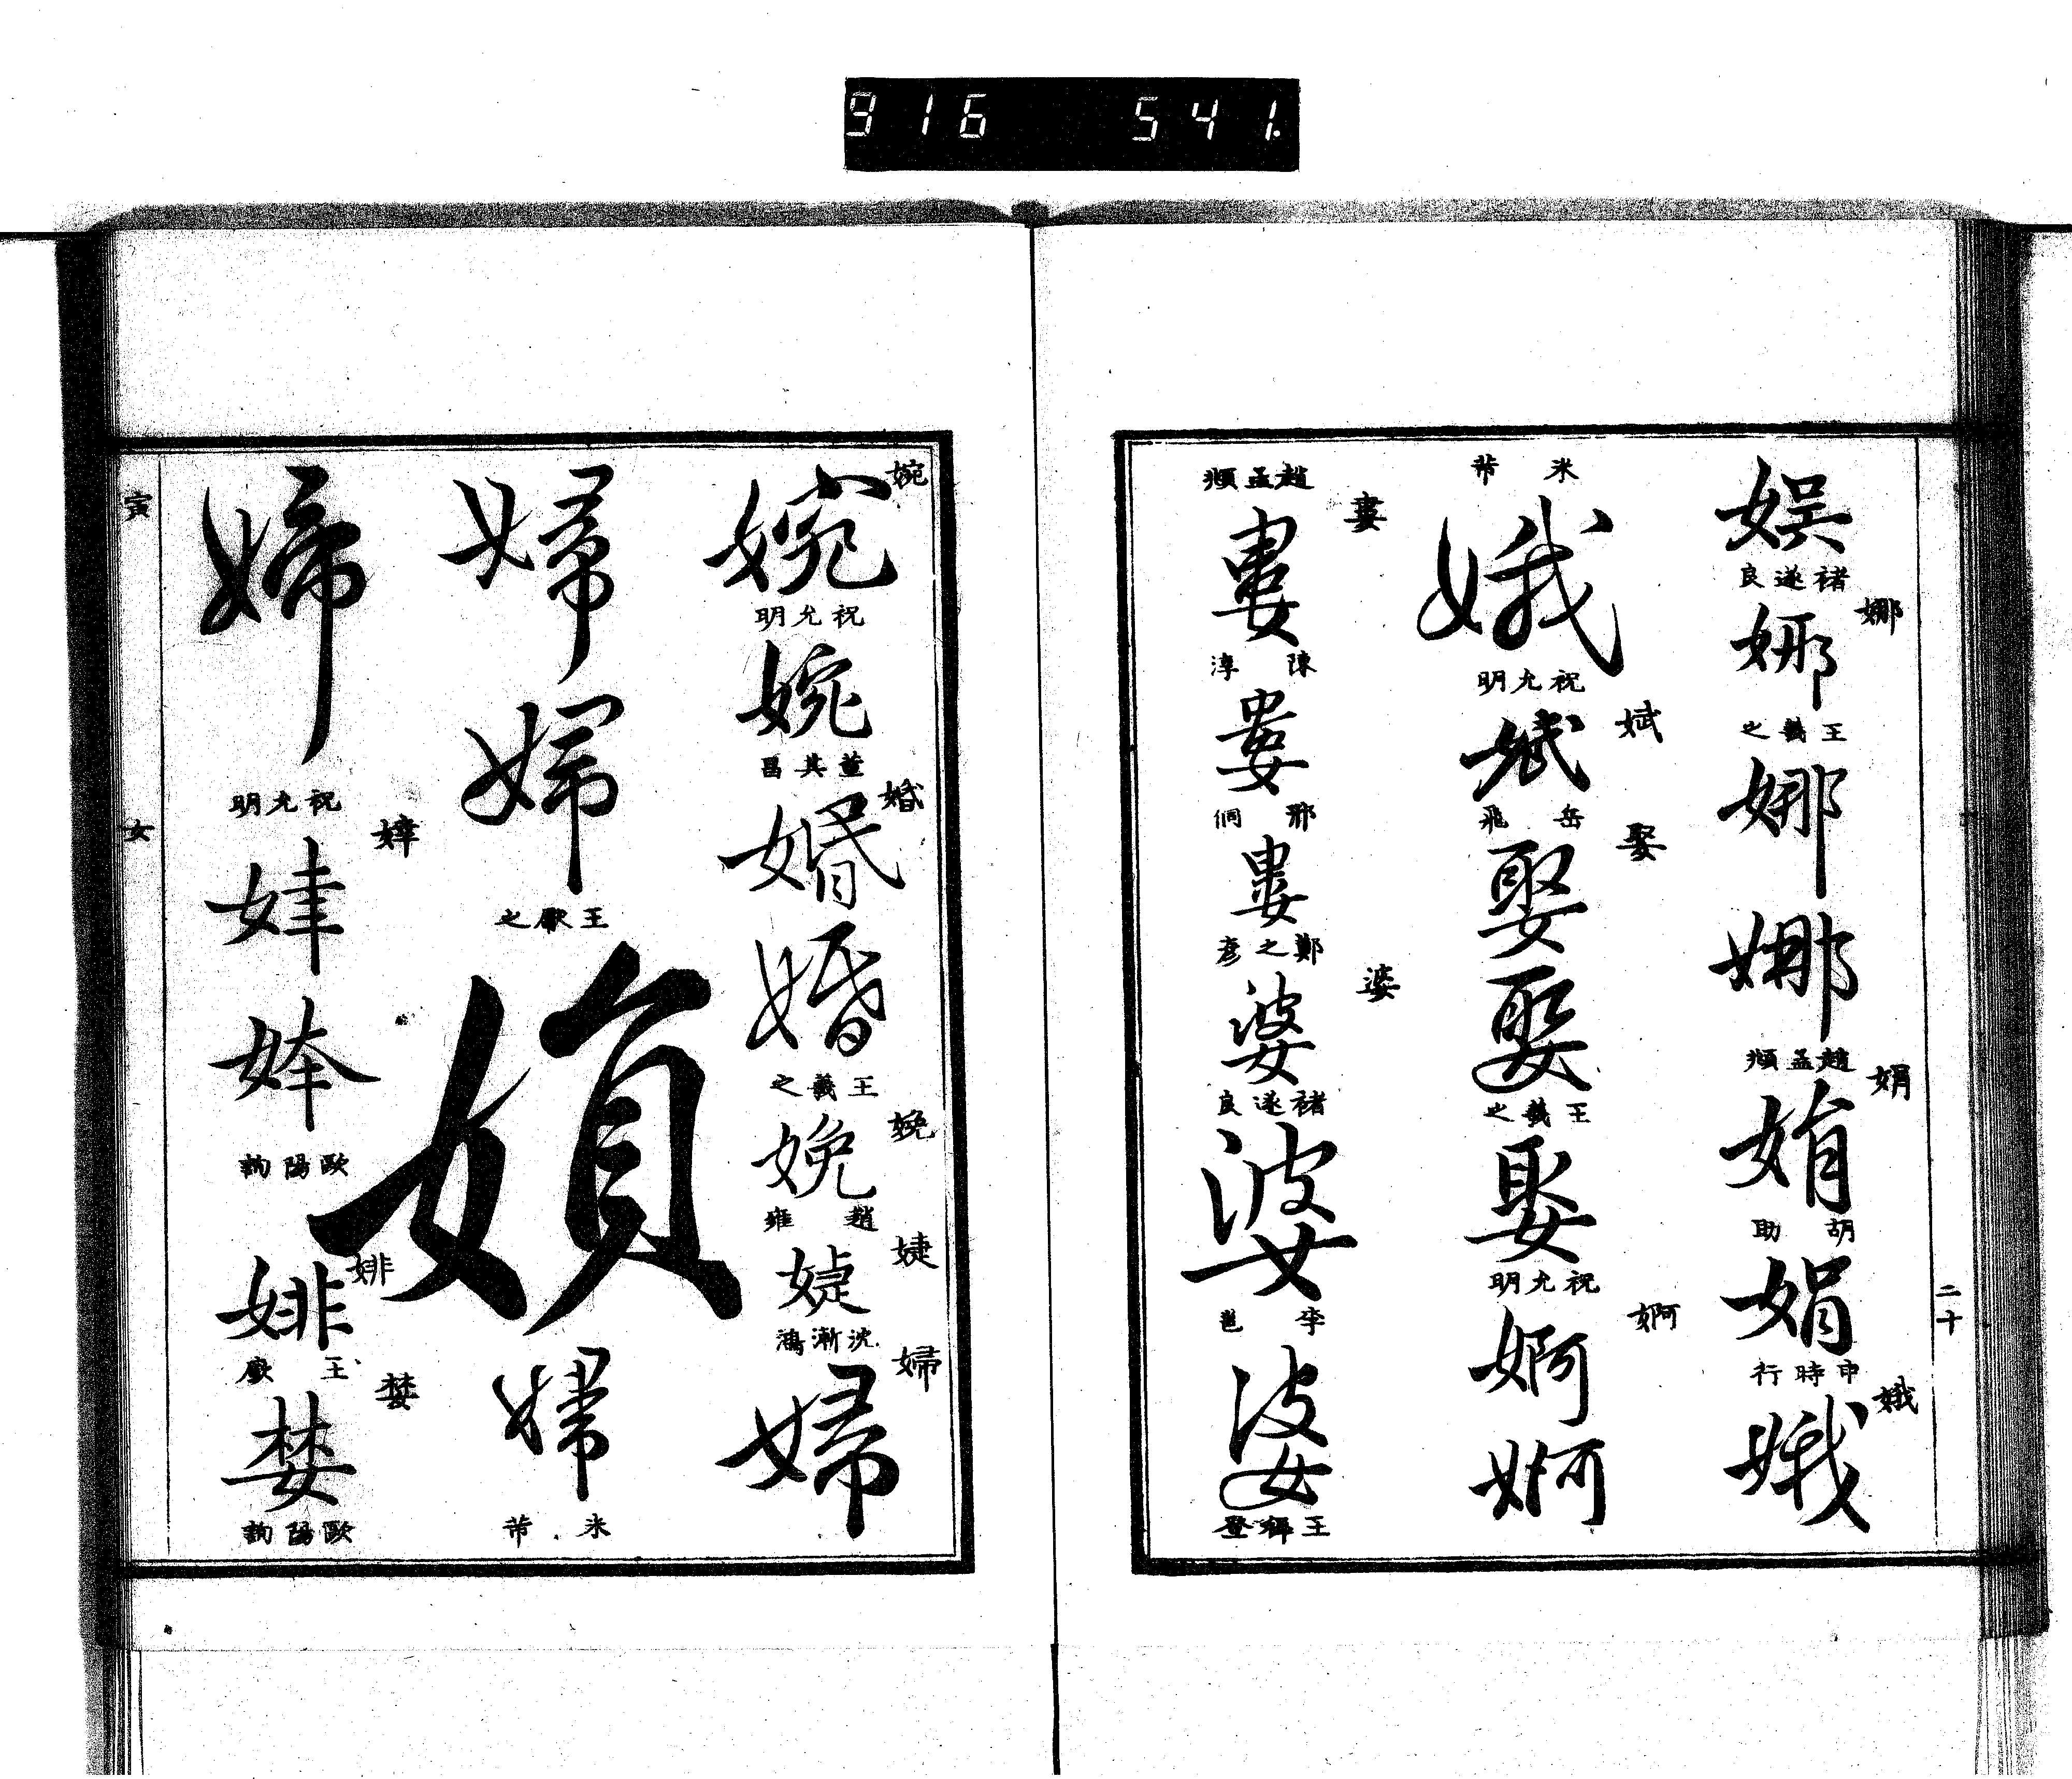 916 541.
娯
褚遂良
娜
娜
王羲之
娜
娜
趙孟頫
娟
娟
胡助
娟
申時行
娥
娥
米芾
娥
祝允明
娬
娬
岳飛
娶
娶
娶
王羲之
娶
祝允明
婀
婀
婀
趙孟頫
婁
婁
陳淳
婁
邢侗
婁
鄭之彥
婆
婆
褚遂良
婆
李邕
婆
王穉登
二十
婉
婉
祝允明
婉
董其昌
婚
婚
婚
王羲之
娩
娩
趙雍
婕
婕
沈漸鴻
婦
婦
婦
婦
王獻之
婦
米芾
婦
祝允明
婞
婞
婞
歐陽詢
婔
婔
王廞
婪
婪
歐陽詢
寅
女